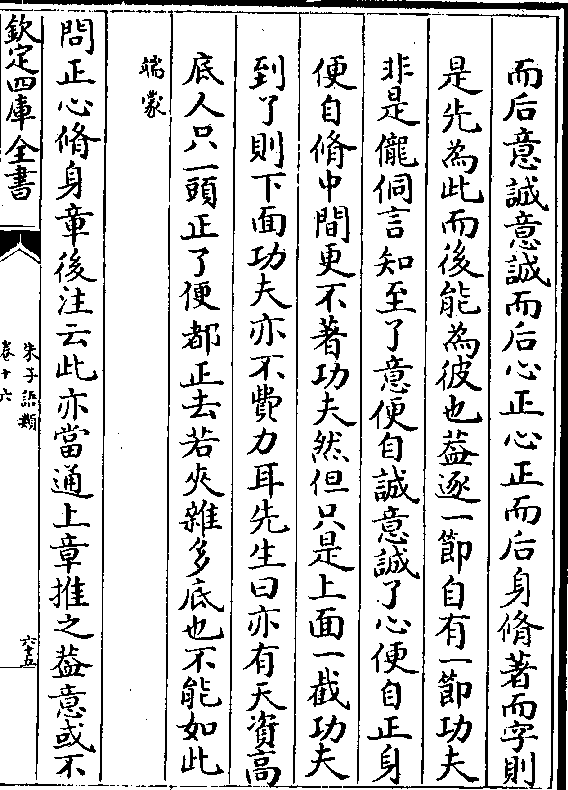 而后意誠意誠而后心正心正而后身脩著而字則
是先為此而後能為彼也葢逐一節自有一節功夫
非是儱侗言知至了意便自誠意誠了心便自正身
便自脩中間更不著功夫然但只是上面一截功夫
到了則下面功夫亦不費力耳先生曰亦有天資高
底人只一頭正了便都正去若夾雜多底也不能如此
端蒙
問正心脩身章後注云此亦當通上章推之葢意或不
欽定四庫全書
朱子語類
卷十六
六十五